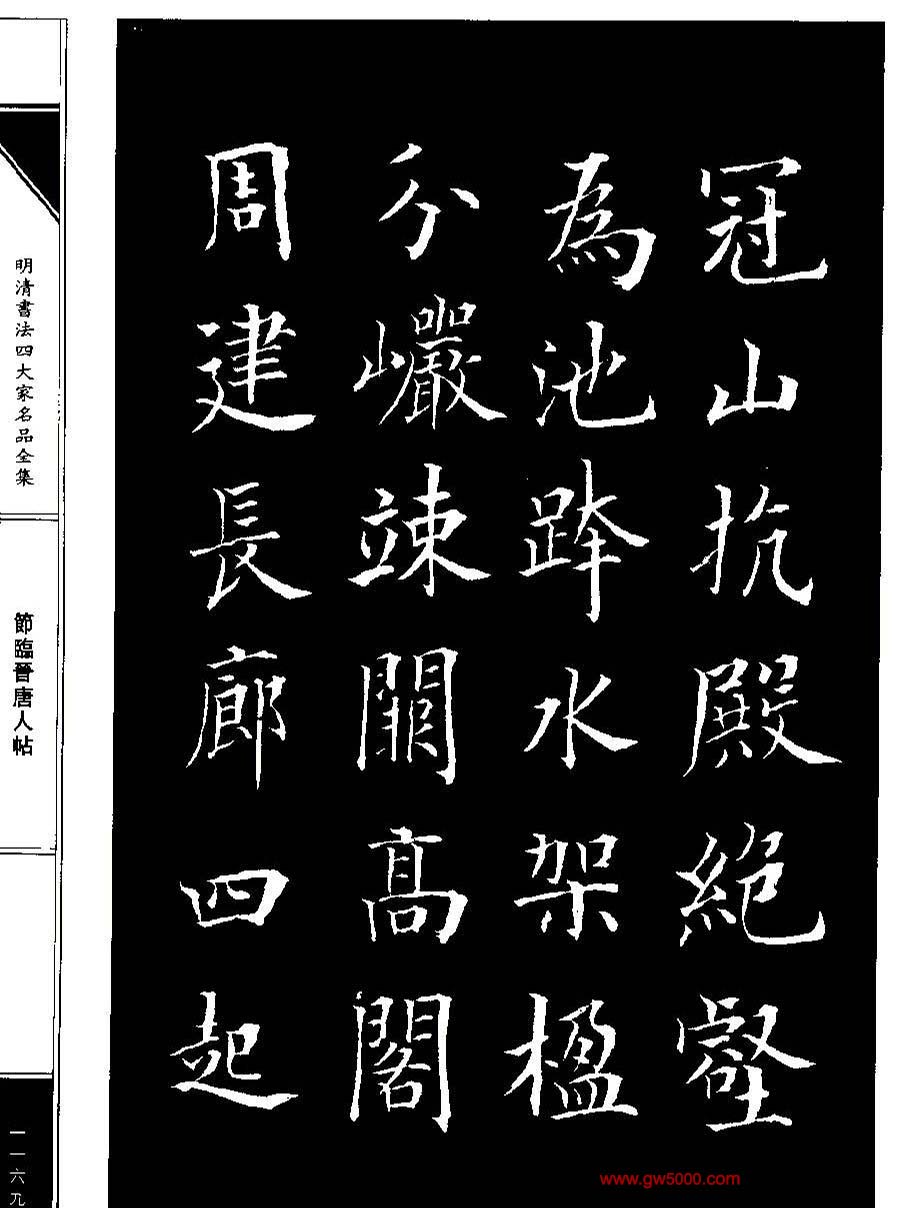 冠山抗殿絶壑
為池跨水架楹
分巖竦闕高閣
周建長廊四起
明清書法四大家名品全集
節臨晉唐人帖
一一六九
www.gw5000.com